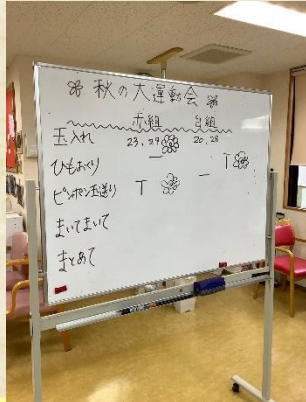 秋の大運動会
赤組 白組
玉入れ 23,29 20,28
ひもおくり 一 T
ピンポン玉送り T 一
まいてまいて
まとあて